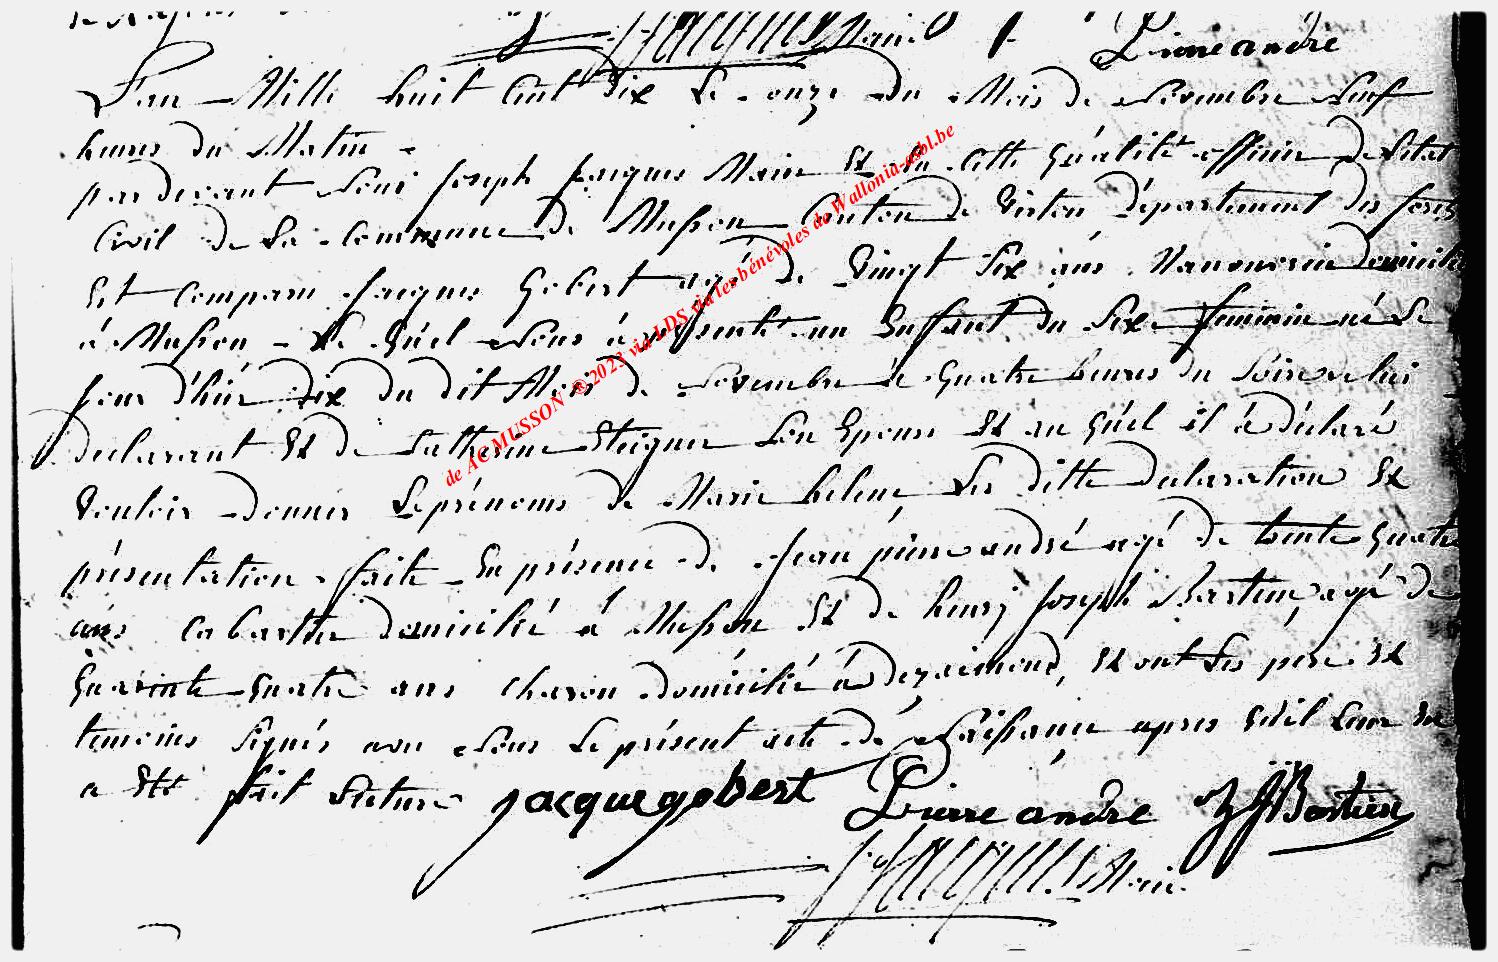 Maire Pierre andre
L'an Mille huit Cent dix Le onze du Mois de Novembre Neuf
heures du Matin
pardevant Nous Joseph Jacques Maire Et En Cette Qualité officier de L'etat
Civil de La Commune de Musson Canton de Virton Département des forets
Est Comparu Jacques Gobert agé de Vingt Six ans Manouvrier domicilié
à Musson Le Quel Nous à présenté un Enffant du Sexe feminin né Le
Jour d'hier dix du dit Mois de Novembre à Quatre heures du Soir de lui
declarant Et de Catherine Steigner Son Epouse Et au Quel il à déclaré
Vouloir donner Le prénoms de Marie helene Les ditte declaration Et
présentation faite En présence de Jean pierre andré agé de trente Quatre
ans Cabartier domicilié à Musson Et de henrj Joseph Bartien agé de
Quarante Quatre ans Charon domicilié à dezaimond, Et ont Les pere Et
temoins Signés avec Nous Le présent acte de Naissance apres Qu'il Leur En
a Etté fait Lecture jacque gobert Pierre andre h J Bartien
Maire
de AC MUSSON © 2023 via LDS via les bénévoles de Wallonia-asbl.be